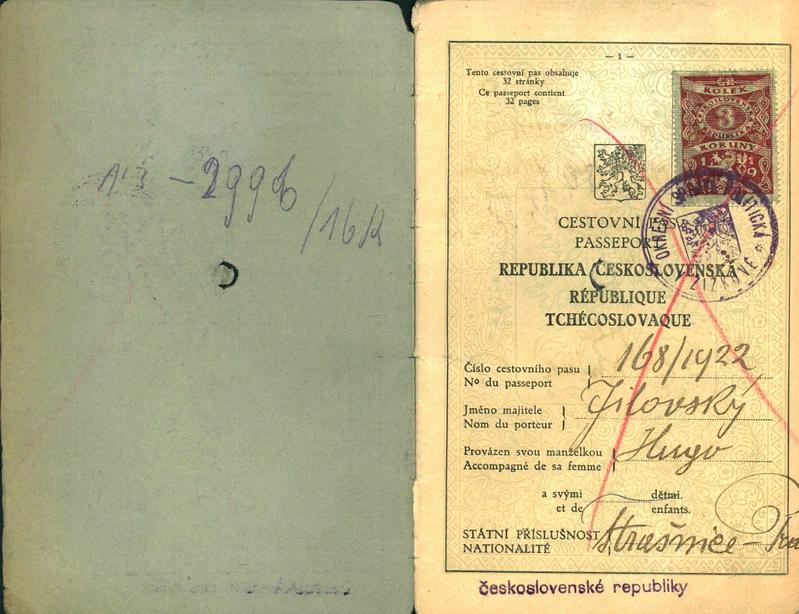 – 1 –
Tento cestovní pas obsahuje
32 stránky
Ce passeport contient
32 pages
KOLEK
3
KORUNY
1919
OKRESNÍ SPRÁVA POLITICKÁ
ŽIŽKOVĚ
CESTOVNÍ PAS
PASSEPORT
REPUBLIKA ČESKOSLOVENSKÁ
RÉPUBLIQUE
TCHÉCOSLOVAQUE
Číslo cestovního pasu
No du passeport
168/1922
Jméno majitele
Nom du porteur
Jilovský
Provázen svou manželkou
Accompagné de sa femme
Hugo
a svými dětmi.
et de enfants.
STÁTNÍ PŘÍSLUŠNOST
NATIONALITÉ
Strašnice –
československé republiky